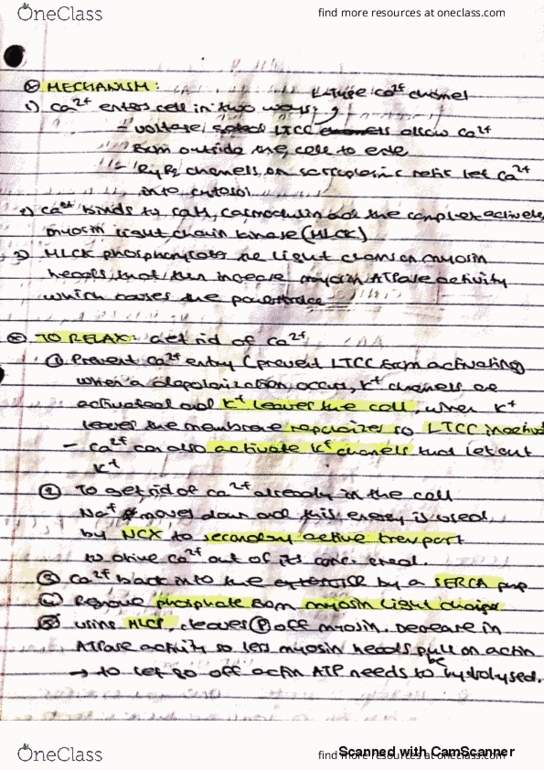 OneClass
find more resources at oneclass.com
MECHANISM:
L-type Ca2+ channel
1) Ca2+ enters cell in two ways:
- voltage gated LTCC channels allow Ca2+
from outside the cell to
- RyR2 channels on sarcoplasmic let Ca2+
into cytosol
2) Ca2+ binds to calmodulin and the complex actives
myosin light chain kinase (MLCK)
3) MLCK phosphorylates the light chains on myosin
heads that then increase myosin ATPase activity
which causes the
TO RELAX: Get rid of Ca2+
① Prevent Ca2+ entry (prevent LTCC from activating
when a depolarization occurs, K+ channels are
activated and K+ leaves the cell, when K+
leaves the membrane repolarizes so LTCC
- Ca2+ can also activate K+ channels that let out
K+
② To get rid of Ca2+ already in the cell
Na+ moves down and this energy is used
by NCX to secondary active transport
to drive Ca2+ out of its conc.
③ Ca2+ back into the by a SERCA pump
④ Remove phosphate from myosin light chains
⑤ using MLCP, cleaves Ⓟ off myosin. Decrease in
ATPase activity so less myosin heads pull on actin
→ to let go off actin ATP needs to be hydrolysed.
OneClass
find more resources at oneclass.com
Scanned with CamScanner